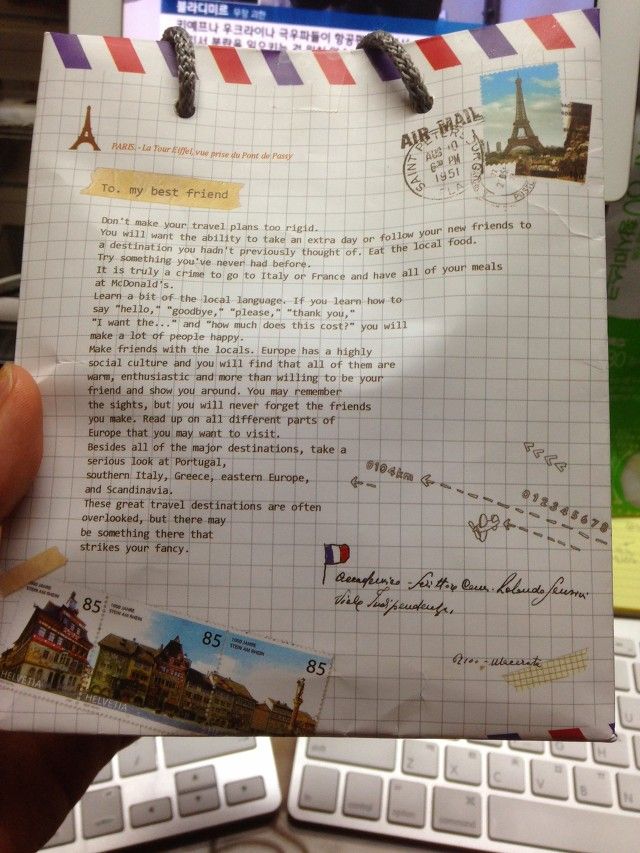 블라디미르
키예프나 우크라이나 극우파들이 항공
AIR MAIL
AUG 10
6 PM
1951
PARIS. - La Tour Eiffel, vue prise du Pont de Passy
To. my best friend
Don't make your travel plans too rigid.
You will want the ability to take an extra day or follow your new friends to
a destination you hadn't previously thought of. Eat the local food.
Try something you've never had before.
It is truly a crime to go to Italy or France and have all of your meals
at McDonald's.
Learn a bit of the local language. If you learn how to
say "hello," "goodbye," "please," "thank you,"
"I want the..." and "how much does this cost?" you will
make a lot of people happy.
Make friends with the locals. Europe has a highly
social culture and you will find that all of them are
warm, enthusiastic and more than willing to be your
friend and show you around. You may remember
the sights, but you will never forget the friends
you make. Read up on all different parts of
Europe that you may want to visit.
Besides all of the major destinations, take a
serious look at Portugal,
southern Italy, Greece, eastern Europe,
and Scandinavia.
These great travel destinations are often
overlooked, but there may
be something there that
strikes your fancy.
0104km
012345678
85
1000 JAHRE
STEIN AM RHEIN
HELVETIA
85
1000 JAHRE
STEIN AM RHEIN
HELVETIA
85
1000 JAHRE
STEIN AM RHEIN
control
option